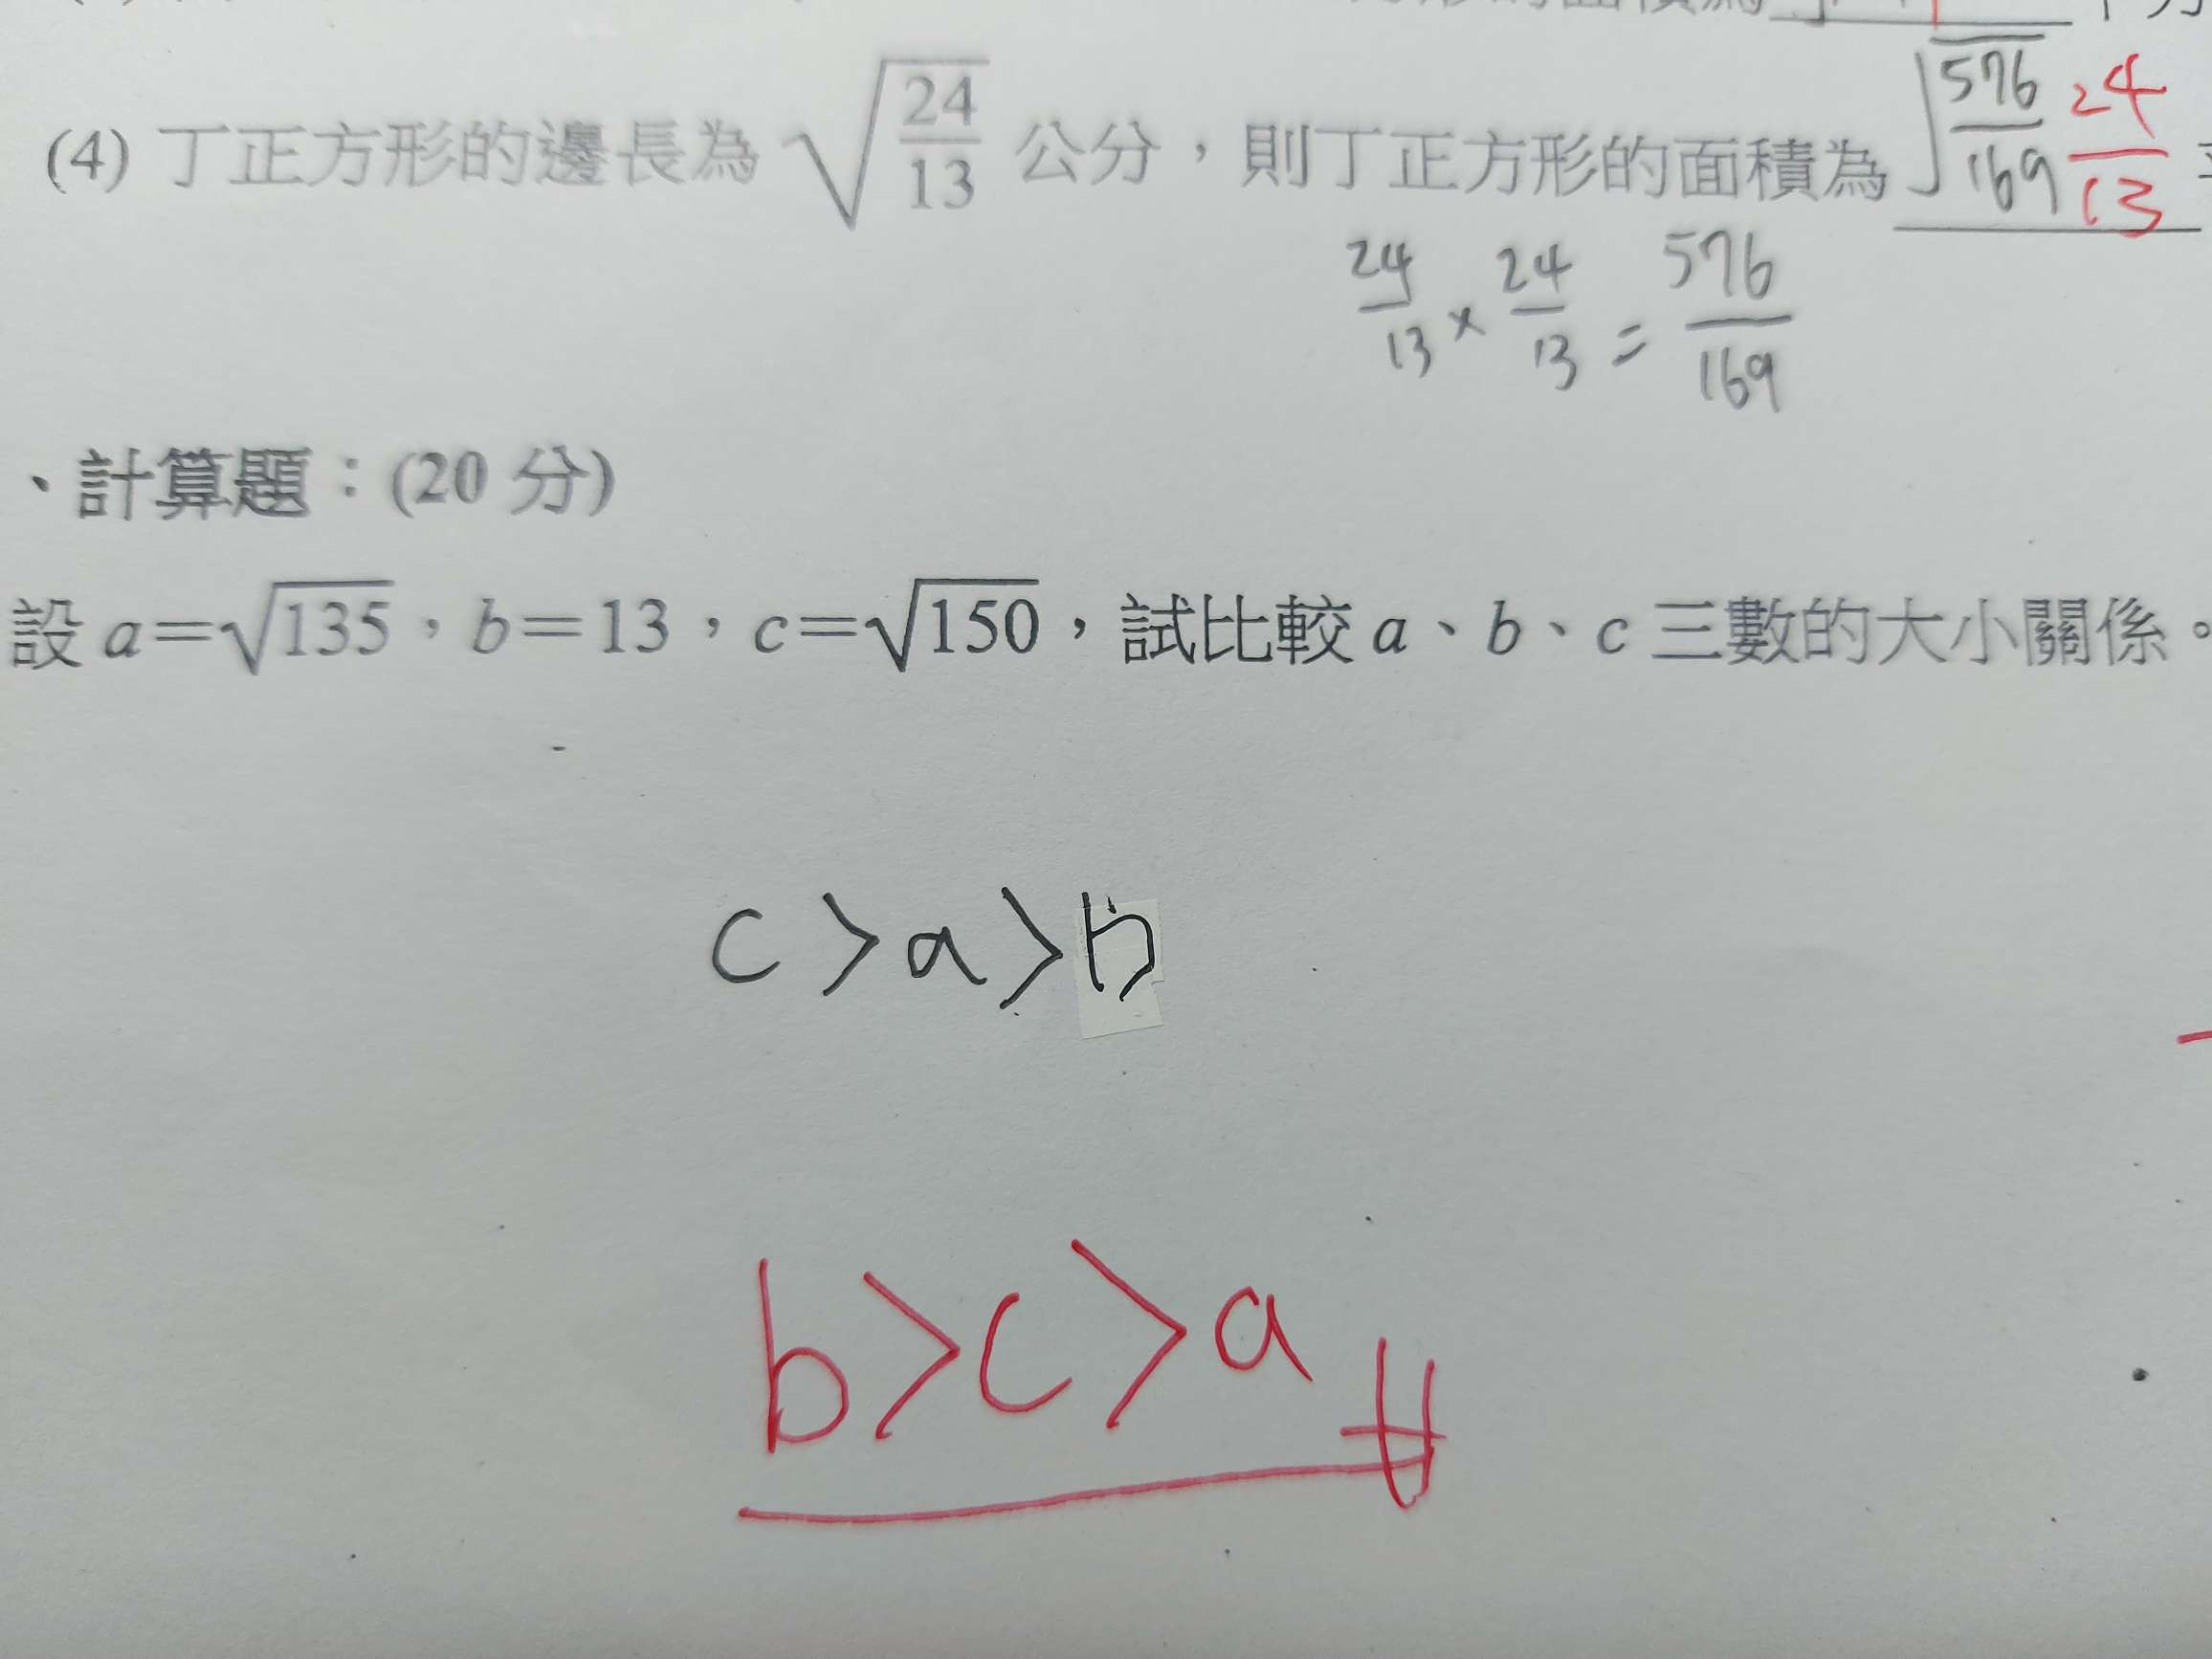 (4) 丁正方形的邊長為 √(24/13) 公分，則丁正方形的面積為 √(576/169) 24/13
24/13 × 24/13 = 576/169
、計算題：(20 分)
設 a＝√135，b＝13，c＝√150，試比較 a、b、c 三數的大小關係。
c>a>b
b>c>a